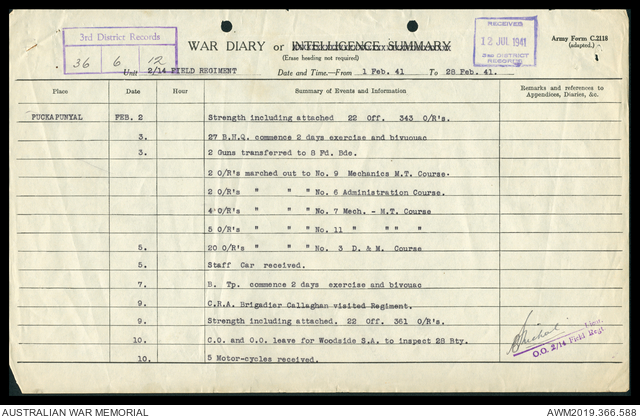 3rd District Records
36 6 12
WAR DIARY or INTELLIGENCE SUMMARY
(Erase heading not required)
RECEIVED
12 JUL 1941
3RD DISTRICT
RECORDS
Army Form C.2118
(adapted.)
Unit 2/14 FIELD REGIMENT Date and Time.—From 1 Feb. 41 To 28 Feb. 41.
Place Date Hour Summary of Events and Information Remarks and references to Appendices, Diaries, &c.
PUCKAPUNYAL FEB. 2 Strength including attached 22 Off. 343 O/R's.
3. 27 B.H.Q. commence 2 days exercise and bivuouac
3. 2 Guns transferred to 8 Fd. Bde.
2 O/R's marched out to No. 9 Mechanics M.T. Course.
2 O/R's " " " No. 6 Administration Course.
4 O/R's " " " No. 7 Mech. - M.T. Course
5 O/R's " " " No. 11 " " " "
5. 20 O/R's " " " No. 3 D. & M. Course
5. Staff Car received.
7. B. Tp. commence 2 days exercise and bivouac
9. C.R.A. Brigadier Callaghan visited Regiment.
9. Strength including attached. 22 Off. 361 O/R's.
10. C.O. and O.O. leave for Woodside S.A. to inspect 28 Bty.
10. 5 Motor-cycles received.
Lieu.
O.O. 2/14 Field Regt
AUSTRALIAN WAR MEMORIAL AWM2019.366.588